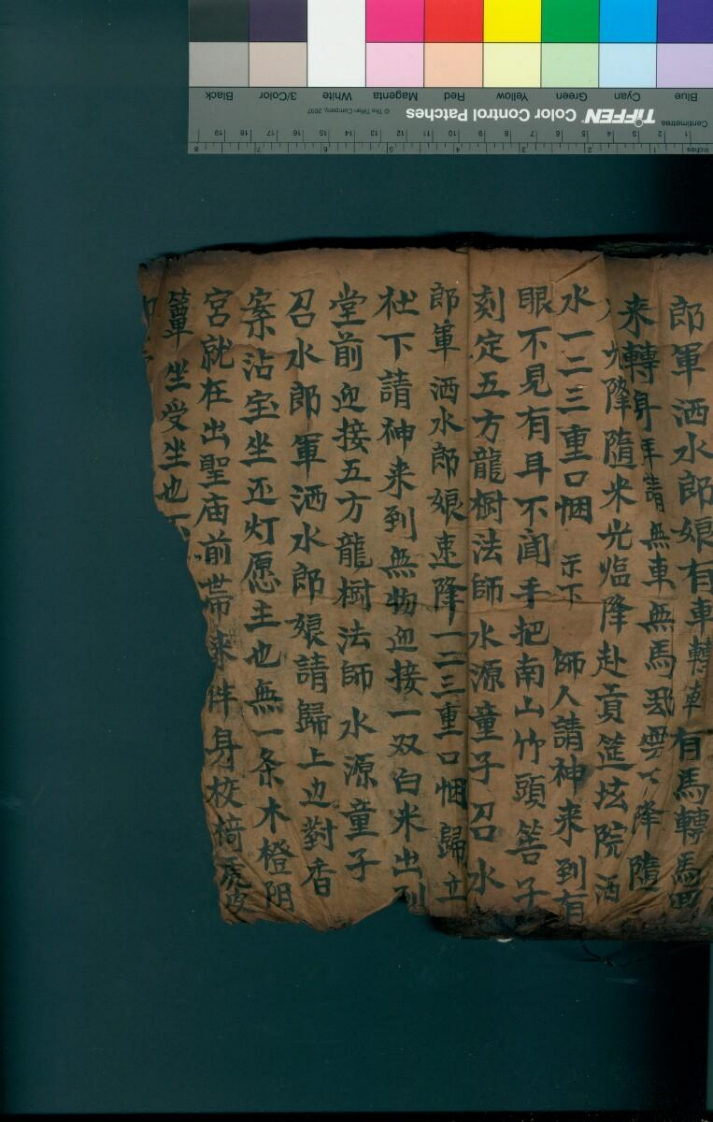 郎軍洒水郎娘有車轉車有馬轉馬
来轉身拜請無車無馬雲降隨
光降隨米光临降赴貢筵坛院洒
水一二三重口悃 示下 師人請神来到有
眼不見有耳不闻手把南山竹頭筶子
刻定五方龍樹法師水源童子召水
郎軍洒水郎娘速降一二三重口悃歸立
社下請神来到無物迎接一双白米出到
堂前迎接五方龍樹法師水源童子
召水郎軍洒水郎娘請歸上边對香
案沾宝坐丕灯愿主也無一条木橙阴
宮就在出聖庙前帶来伴身校椅虎皮
簟坐受坐也
Black 3/Color White Magenta Red Yellow Green Cyan Blue
© The Tiffen Company, 2007
TIFFEN Color Control Patches
Centimetres
19 18 17 16 15 14 13 12 11 10 9 8 7 6 5 4 3 2 1
8 7 6 5 4 3 2 1 Inches